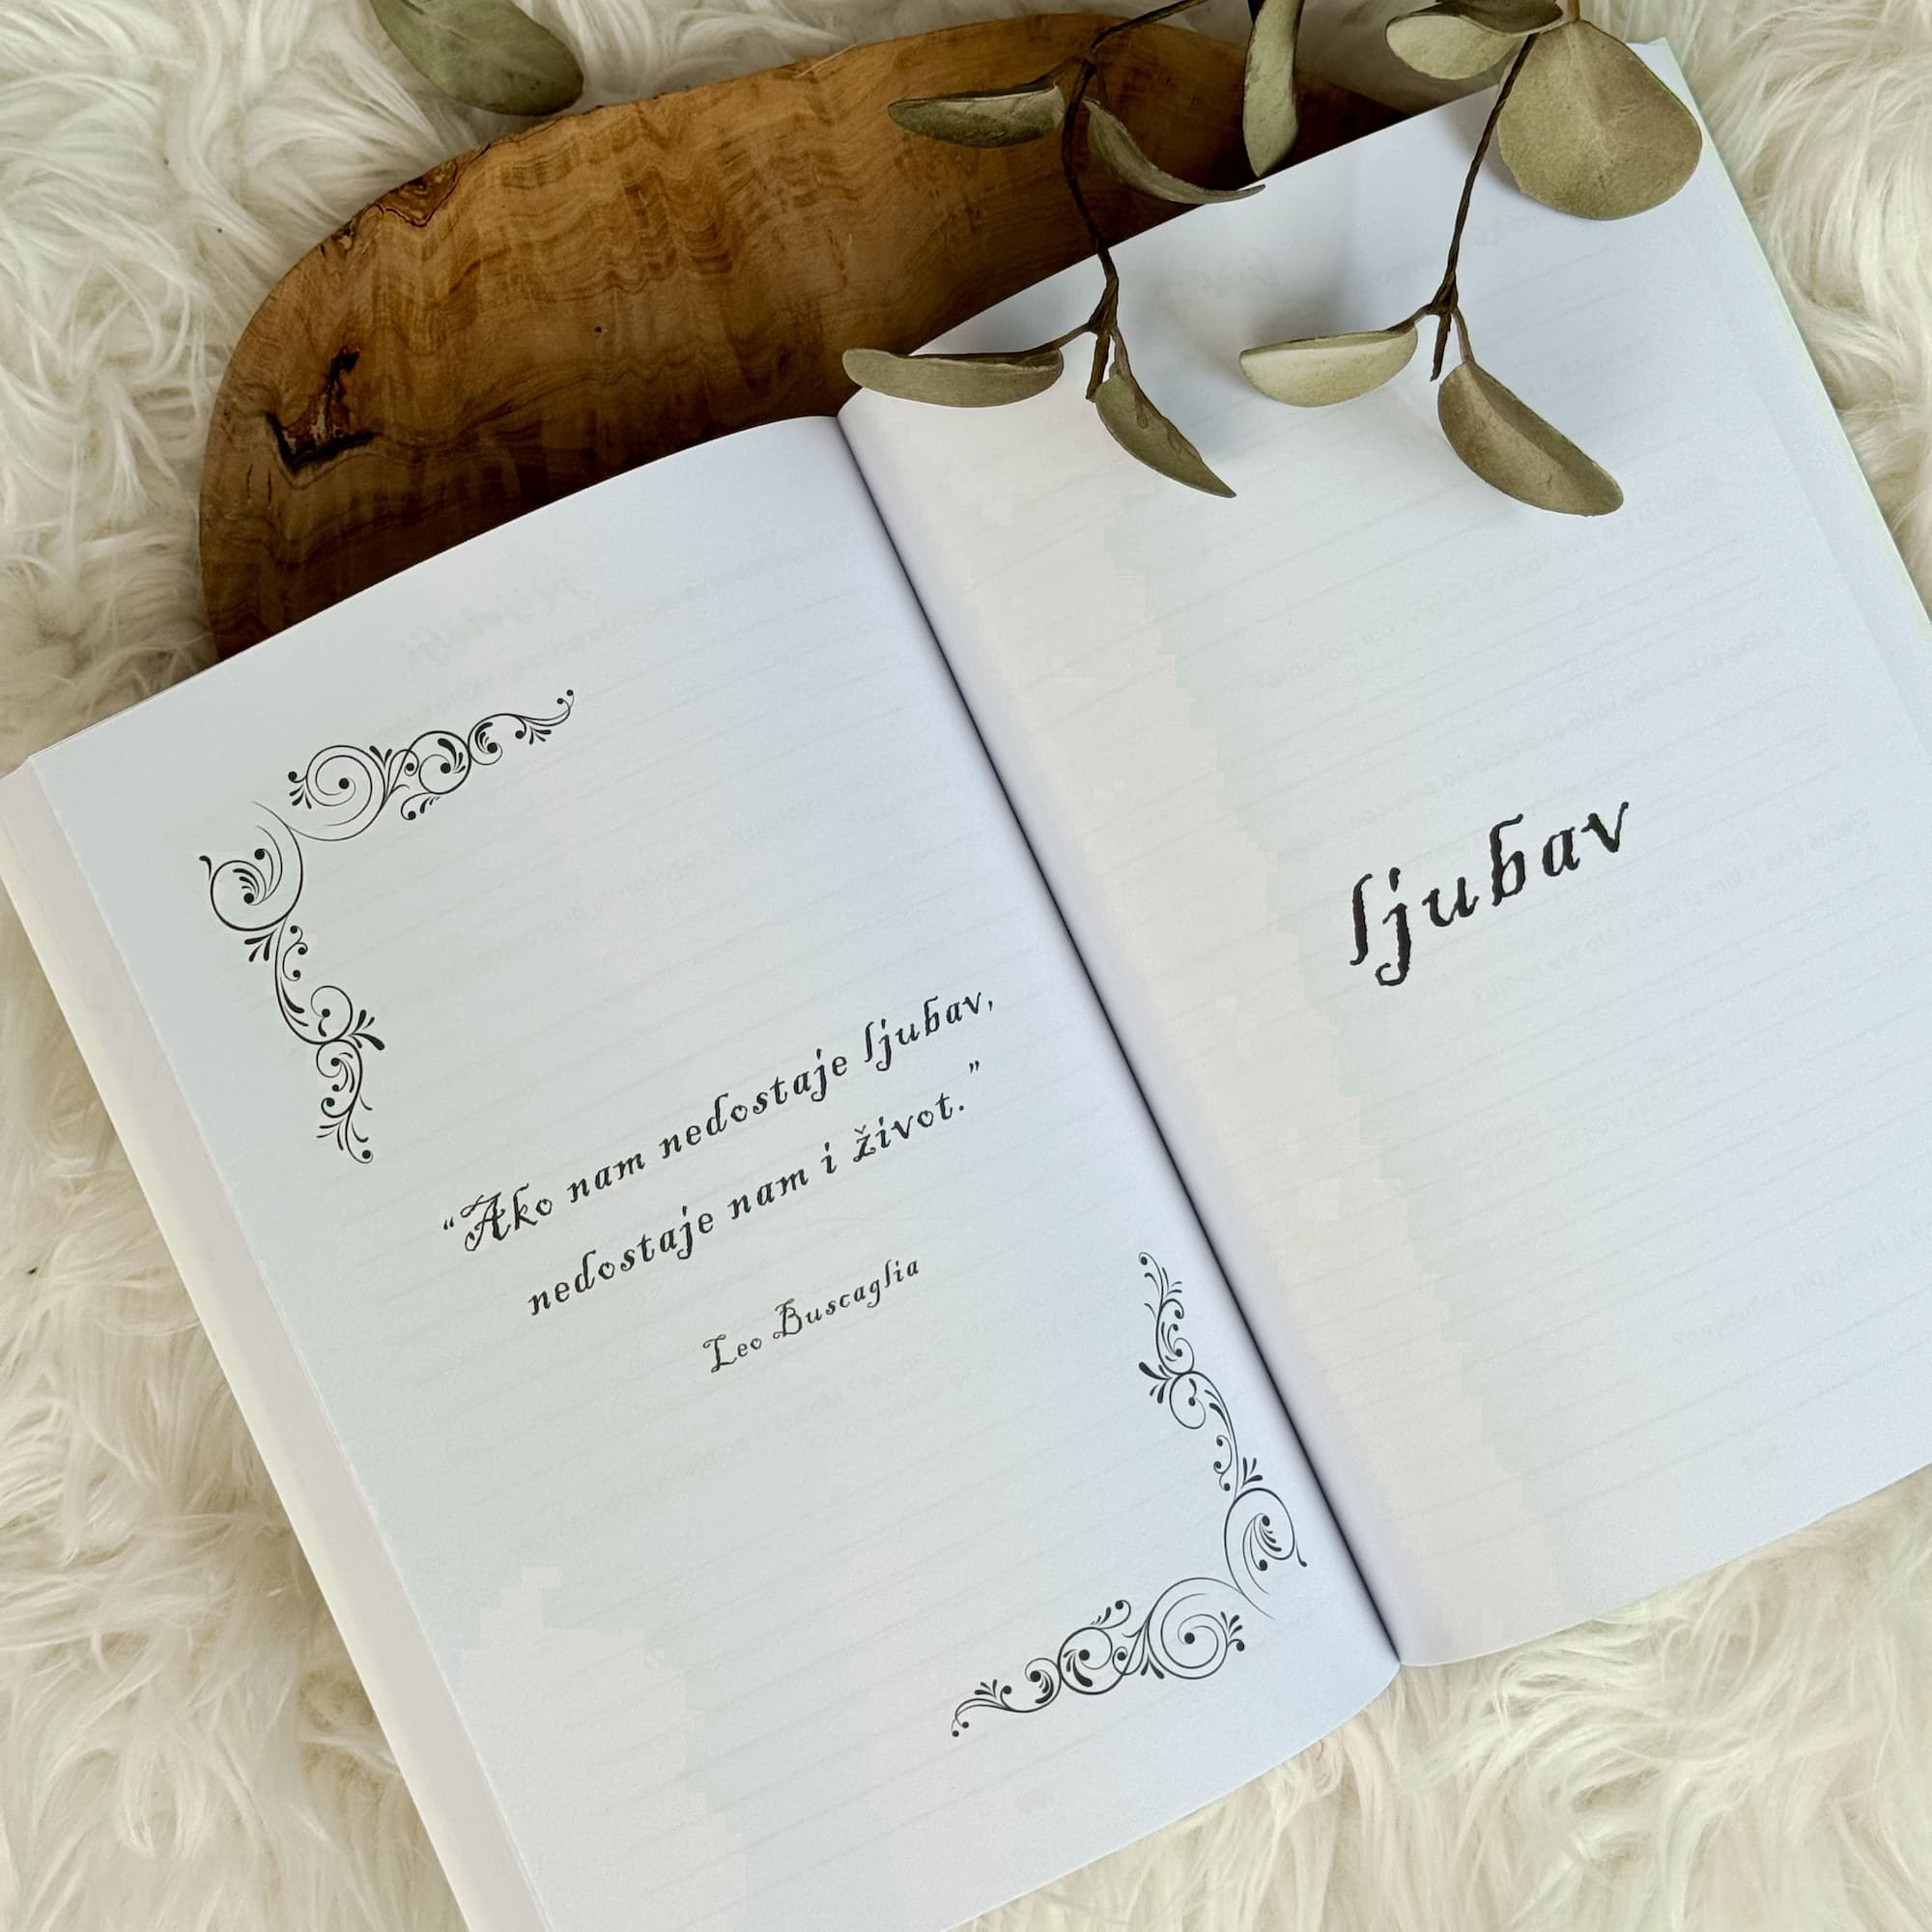 “Ako nam nedostaje ljubav,
nedostaje nam i život.”
Leo Buscaglia
ljubav